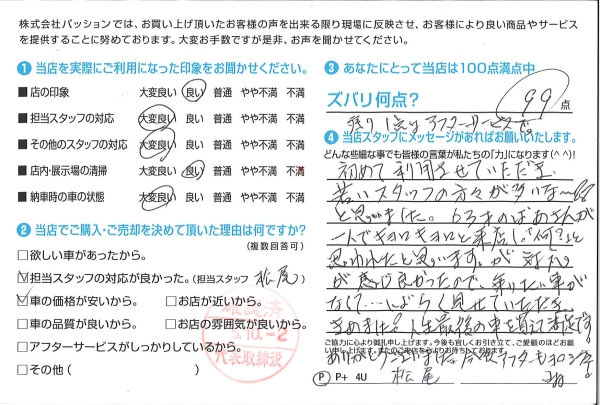 株式会社パッションでは、お買い上げ頂いたお客様の声を出来る限り現場に反映させ、お客様により良い商品やサービス
を提供することに努めております。大変お手数ですが是非、お声を聞かせてください。
❶ 当店を実際にご利用になった印象をお聞かせください。
■ 店の印象 大変良い 良い 普通 やや不満 不満
■ 担当スタッフの対応 大変良い 良い 普通 やや不満 不満
■ その他のスタッフの対応 大変良い 良い 普通 やや不満 不満
■ 店内・展示場の清掃 大変良い 良い 普通 やや不満 不満
■ 納車時の車の状態 大変良い 良い 普通 やや不満 不満
❷ 当店でご購入・ご売却を決めて頂いた理由は何ですか?
(複数回答可)
□欲しい車があったから。
☑担当スタッフの対応が良かった。(担当スタッフ 松尾)
☑車の価格が安いから。 □お店が近いから。
□車の品質が良いから。 □お店の雰囲気が良いから。
□アフターサービスがしっかりしているから。
□その他 ( )
確認済
10.-2
代表取締役
❸ あなたにとって当店は100点満点中
ズバリ何点? 99 点
残り1点はアフターサービスで。
❹ 当店スタッフにメッセージがあればお願いいたします。
どんな些細な事でも皆様の言葉が私たちの「力」になります(^ ^)!
初めて利用させていただき
若いスタッフの方々が多いな〜
と思いました。63才のばあさんが
一人でキョロキョロと来店し、"何?"と
思われたと思います。が 対応
が感じ良かったので、乗りたい車が
なくて…しばらく見せていただき
きめました。人生最後の車を買って満足です
ご協力に心より御礼申し上げます。今後も宜しくお引き立て、ご愛顧のほどお願
い申し上げます。またのご来店を心よりお待ちしております。
ありがとうございました。今後アフターもヨロシク
P P+ 4U 松尾